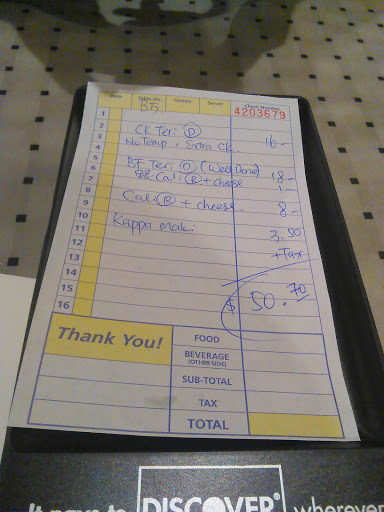 Date Table No. Guests Server Check Number
B5. 4203679
1
2 CK Teri D 16-
3 No Temp, Extra CK.
4
5 BF Teri D (Well Done) 18-
6 Cali R + cheese 1-
7
8 Cali R + cheese. 8-
9
10 Kappa Maki 3.50
11 + Tax
12
13 $ 50.70
14
15
16
Thank You! FOOD
BEVERAGE
(OTHER SIDE)
SUB-TOTAL
TAX
TOTAL
It pays to DISCOVER wherever